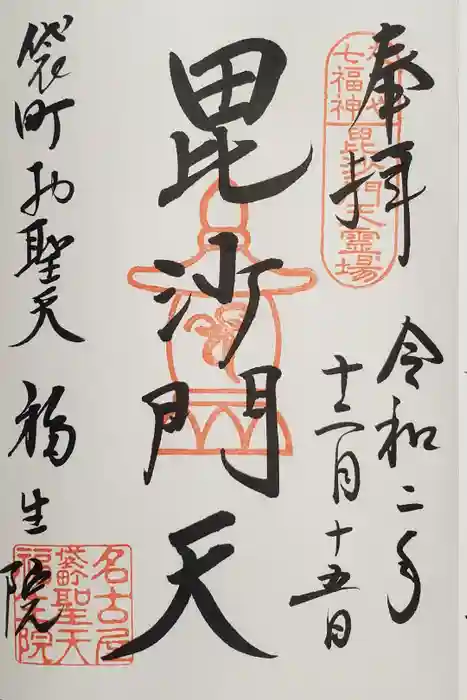 奉拝
七福神
毘沙門天霊場
令和二年
十二月十五日
毘沙門天
袋町お聖天
福生院
名古屋
袋町聖天
福生院